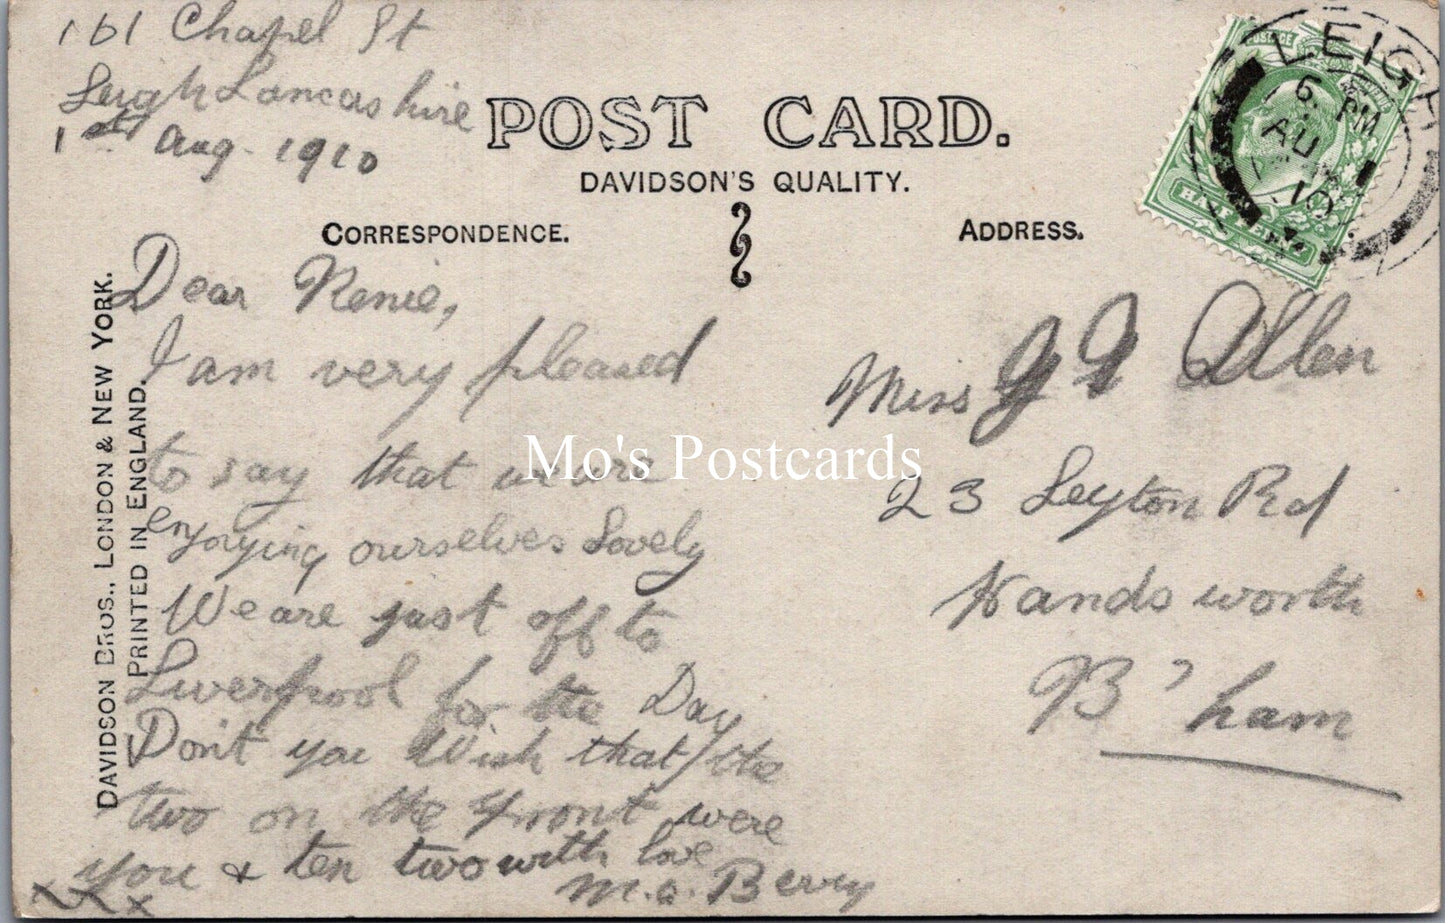 161 Chapel St
Leigh Lancashire
1st Aug. 1910
POST CARD.
DAVIDSON'S QUALITY.
CORRESPONDENCE.
ADDRESS.
LEIGH
6. PM
AU 1
10
POSTAGE
HALF PENNY
Dear Renie,
I am very pleased
to say that we are
enjoying ourselves lovely
We are just off to
Liverpool for the Day
Don't you Wish that the
two on the front were
you & ten two with love
M.a. Berry
Miss G I Allen
23 Leyton Rd
Handsworth
B'ham
DAVIDSON BROS., LONDON & NEW YORK.
PRINTED IN ENGLAND.
Mo's Postcards